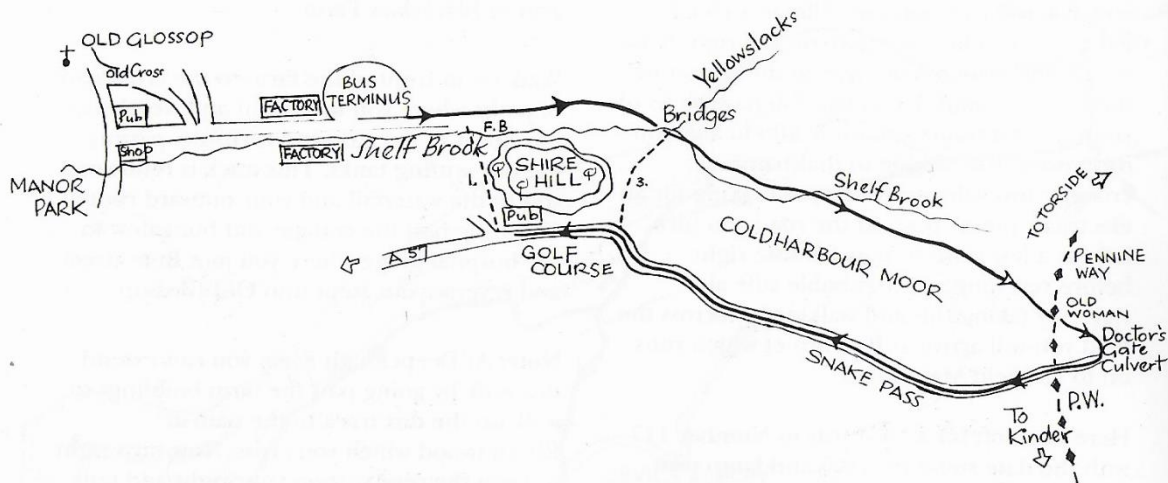 OLD GLOSSOP
Old Cross
Pub
Shop
MANOR
PARK
FACTORY
BUS
TERMINUS
FACTORY
Shelf Brook
F.B
1.
SHIRE
HILL
Pub
A 57
GOLF
COURSE
3.
Bridges
Yellowslacks
Shelf Brook
COLDHARBOUR MOOR
SNAKE PASS
TO TORSIDE
PENNINE
WAY
OLD
WOMAN
Doctor's
Gate
Culvert
P.W.
To
Kinder